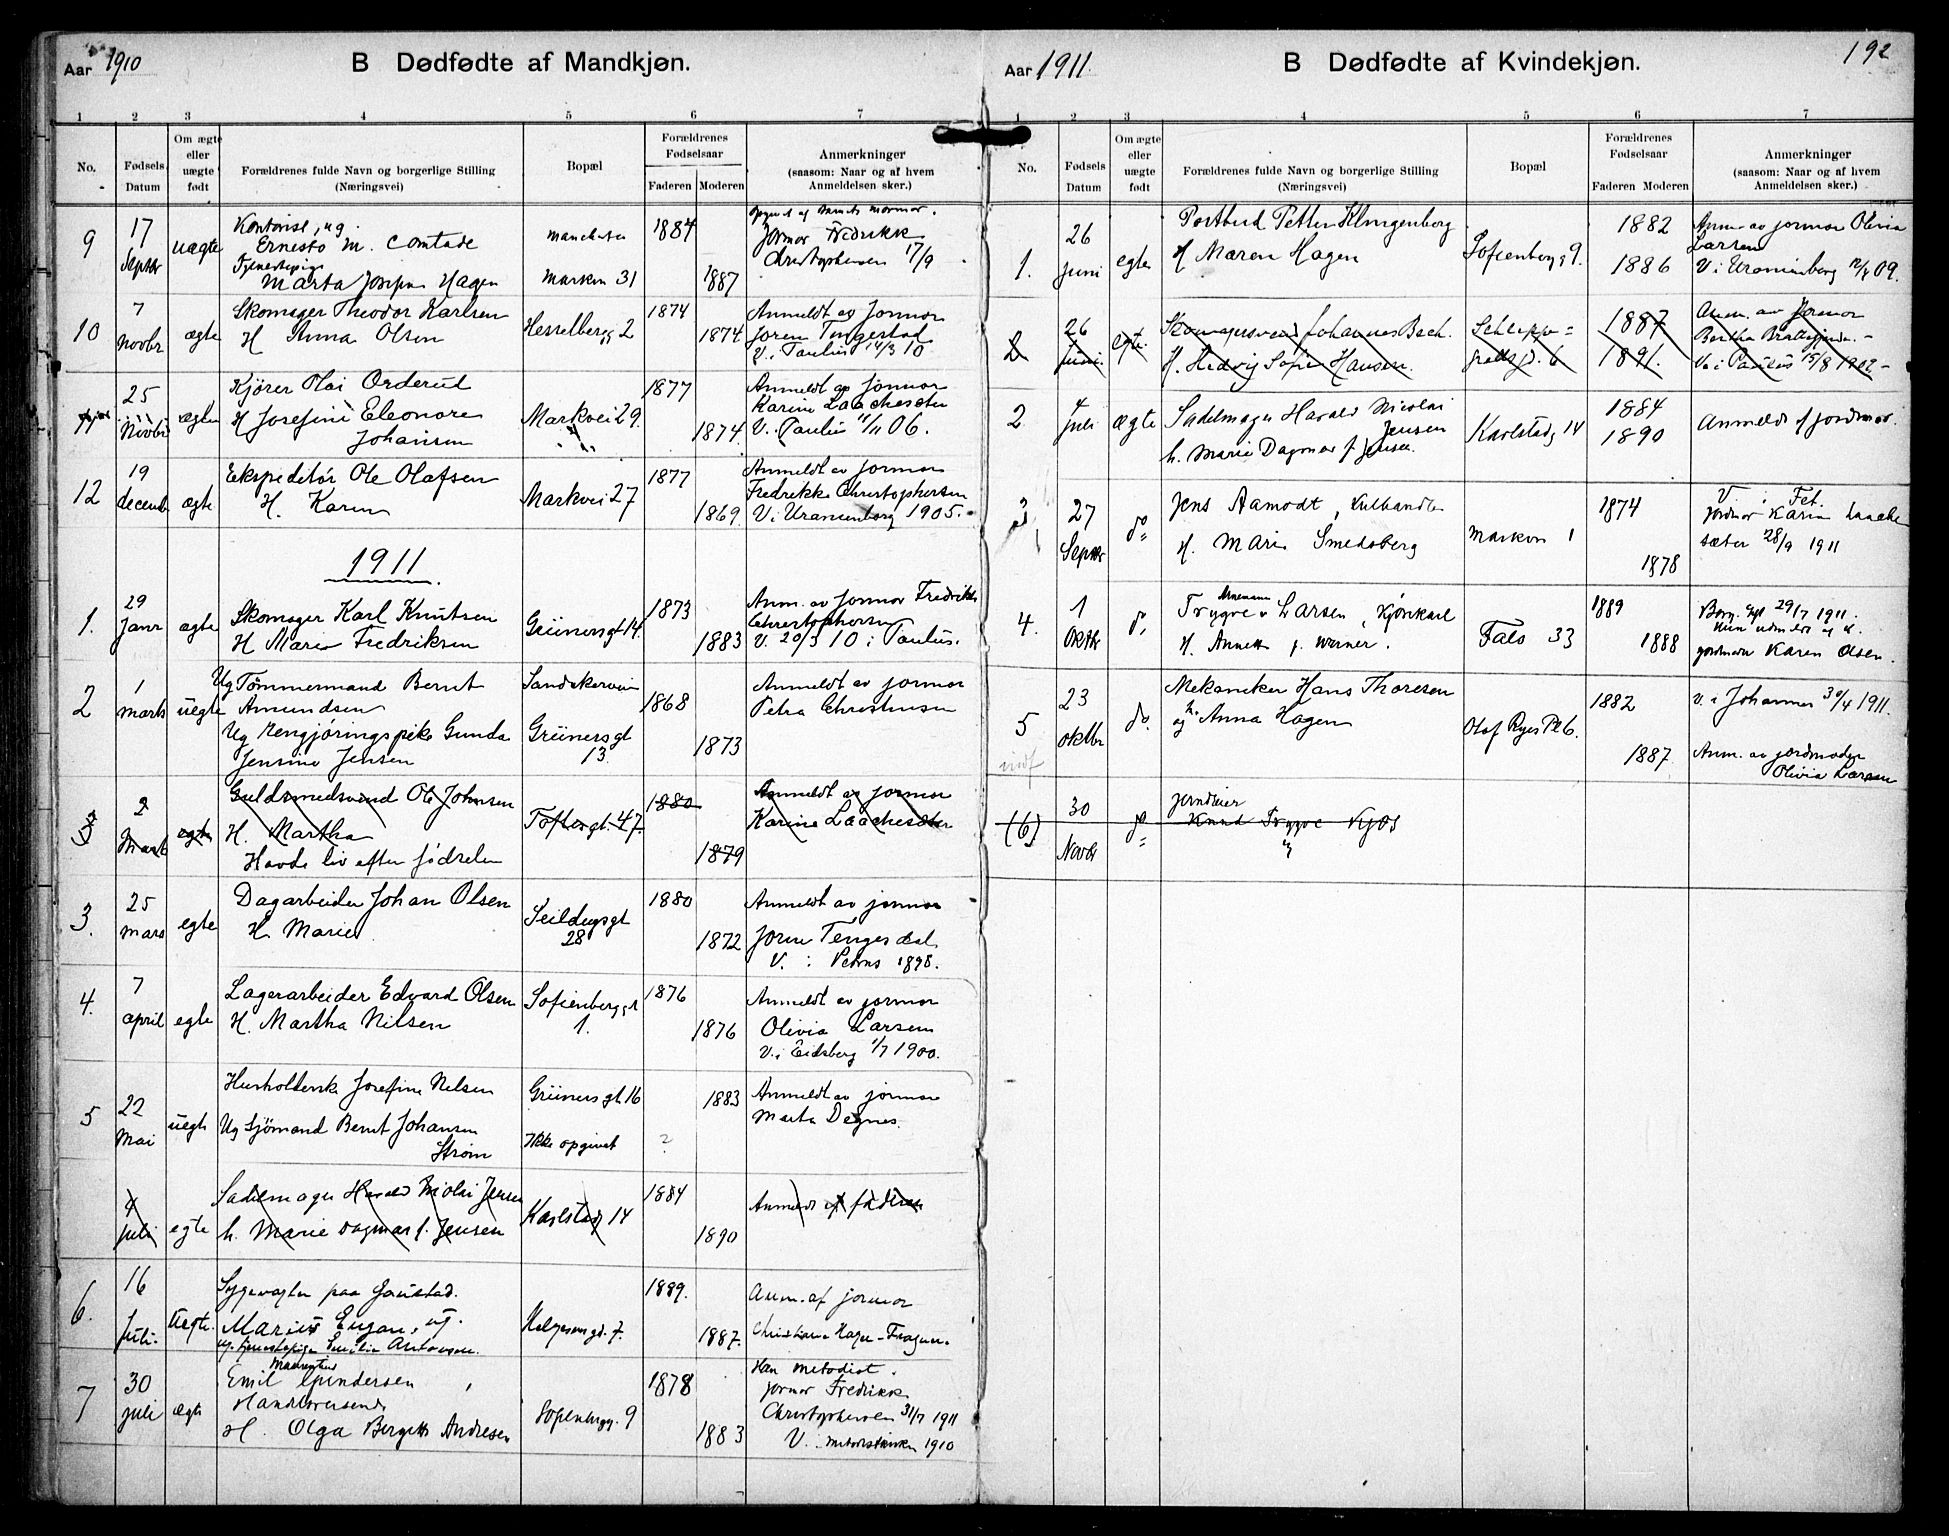 Aar 1910
B Dødfødte af Mandkjøn.
1 2 3 4 5 6 7
No.
Fødsels Datum
Om ægte eller uægte født
Forældrenes fulde Navn og borgerlige Stilling
(Næringsvei)
Bopæl
Forældrenes Fødselsaar
Faderen Moderen
Anmerkninger
(saasom: Naar og af hvem
Anmeldelsen sker.)
9 17 Septbr uægte
Kontorist, ug.
Ernesto M. Comtade
Marta Josefine Hagen
Manchester
Markvn 31
1884
1887
Jormor Fredrikke
Christophersen 17/9
10 7 Novbr ægte
Skomager Theodor Karlsen
H Anna Olsen
Hesselbergg 2
1874
1874
Anmeldt og Jormor
V. i Paulus 14/3 10
25 Novbr ægte
Kjører Olai Orderud
H Josefine Eleonore
Johansen
Markvei 29.
1877
1874.
Anmeldt og jormor
Karine Laachesæter
V. Paulus 11/11 06.
12 19 decemb. ægte
Ekspeditør Ole Olafsen
H. Karen
Markvei 27
1877
1869.
Anmeldt av jormor
Fredrikke Christophersen
V. i Uranienborg 1905.
1911
1. 29 Janr ægte
Skomager Karl Knutsen
H Marie Fredriksen
Grünersgt 14.
1873
1883
Anm. av jormor Fredrikke
Christophersen
V. 20/3 10 i Paulus.
2 1 marts uegte
Ug Tömmermand Bernt
Amundsen
Ug Rengjøringspike Gunda
Jensine Jensen
Sandakerveien
Grünersgt
13.
1868
1873
Anmeldt av jormor
Petra Christensen
3 2 Mart egte
Guldsmedsvend Ole Johnsen
H. Martha
Havde liv efter fødselen
Toftesgt. 47.
1880
1879
Anmeldt av jormor
Karine Laachesæter
3. 25 mars egte
Dagarbeider Johan Olsen
H. Marie
Seildugsgt
28
1880
1872
Anmeldt av jormor
V. i Petrus 1898.
4. 7 april egte
Lagerarbeider Edvard Olsen
H. Martha Nilsen
Sofienberggt
1.
1876
1876
Anmeldt av jormor
Olivia Larsen
V. i Eidsberg 1/7 1900.
5 22 Mai uegte
Husholderske Josefine Nelsen
Ug Sjömand Bernt Johansen
Strøm
Grünersgt 16
Ikke opgivet
1883
?
Anmeldt av jormor
Marta Degnes.
4 juli egte
Sadelmager Harald Nicolai Jensen
h. Marie Dagmar f. Jensen
Karlstadg 14
1884
1890
Anmeldt af faderen
6. 16 Juli. Uegte.
Sygevogter paa Gaustad.
Marius Engan, ug.
ug. tjenestepige Emilie Antonsen.
Helgesensgd. 7.
1889.
1887.
Anm. af jormor
7 30 juli ægte
Emil Gundersen
Handelsreisende
H. Olga Bergitte Andresen
Sofienbergg. 9
1878
1883
Han metodist.
Jormor Fredrikke
Christophersen 31/7 1911
V. i Metodistkirken 1910
Aar 1911
B Dødfødte af Kvindekjøn.
192
1 2 3 4 5 6 7
No.
Fødsels Datum
Om ægte eller uægte født
Forældrenes fulde Navn og borgerlige Stilling
(Næringsvei)
Bopæl
Forældrenes Fødselsaar
Faderen Moderen
Anmerkninger
(saasom: Naar og af hvem
Anmeldelsen sker.)
1. 26 juni egte
Postbud Petter Klingenberg
H Maren Hagen
Sofienbergg 9.
1882
1886
Anm. av jormor Olivia
Larsen
V i Uranienborg 12/4 09.
2 26 Juni egte
Skomagersvend Johannes Bech.
H. Hedvig Sofie Hansen.
Schleppe=
grellsgd. 6
1887
1891.
Anm. av jormor
V. i Paulus 15/8 1902
2 4 juli ægte
Sadelmager Harald Nicolai
Jensen
h. Marie Dagmar f. Jensen
Karlstadg 14
1884
1890
Anmeldt af jordmor.
3 27 Septbr do
Jens Aamodt, Kulhandler
H. Marie Smedsberg
Markvn 1
1874
1878
V. i Fet.
Jordmor Karin Laache
sæter 28/9 1911
4. 1 Oktbr do
Trygve Larsen, Kjørekarl
H. Annette f. Werner.
Fals 33
1889
1888
Borg. gift 29/7 1911.
jordmor Karen Olsen.
5 23 oktbr do.
Mekaniker Hans Thoresen
og H. Anna Hagen
Olaf Ryes Pl 6.
1882
1887
V. i Johannes 30/4 1911.
Anm. av jordmoder
Olivia Larsen
(6) 30 Novbr do
Knud Trygve Kjøs